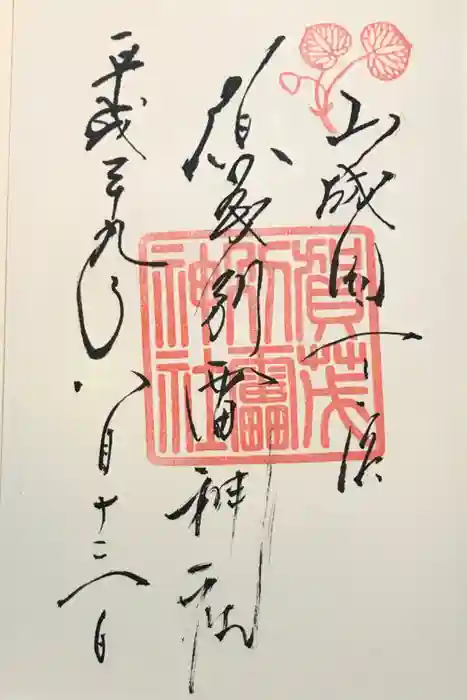 山城国一宮
賀茂別雷神社
平成二十九年八月十六日
賀茂
別雷
神社